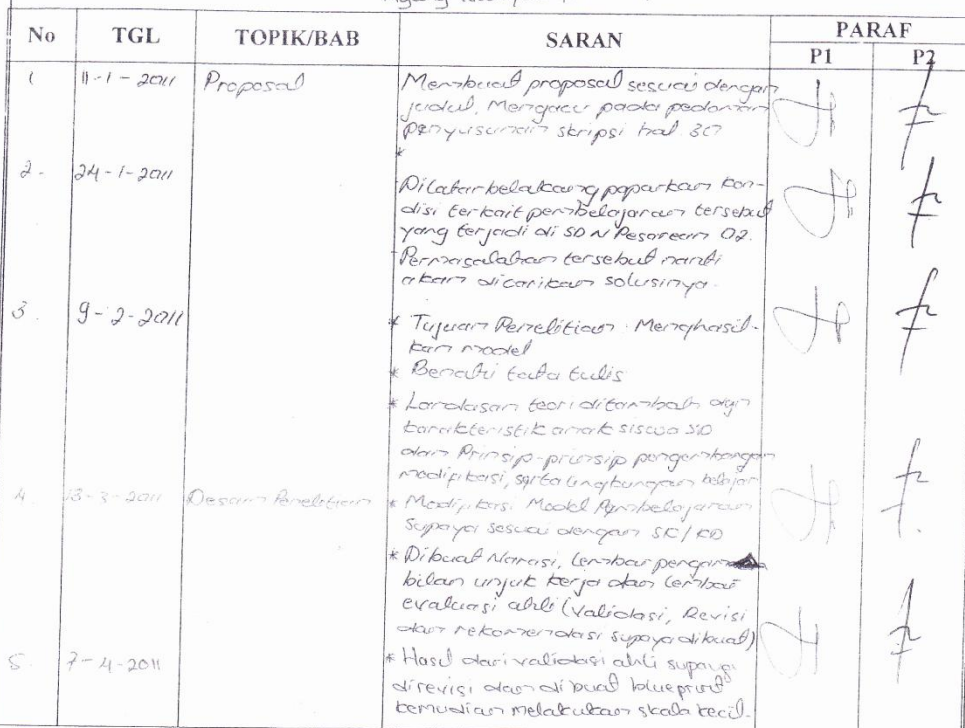 No TGL TOPIK/BAB SARAN PARAF
P1 P2
1 11-1-2011 Proposal Membuat proposal sesuai dengan
judul. Mengacu pada pedoman
penyusunan skripsi hal 30
*
2. 24-1-2011
Dilatarbelakang paparkan kon-
disi terkait pembelajaran tersebut
yang terjadi di SD N Pesarean 02.
Permasalahan tersebut nanti
akan dicarikan solusinya.
3. 9-2-2011
* Tujuan Penelitian. Menghasil-
kan model
* Benahi tata tulis
* Landasan teori ditambah dgn
karakteristik anak siswa SD
dan Prinsip-prinsip pengembangan
modifikasi, serta lingkungan belajar
4. 13-3-2011 Desain Penelitian * Modifikasi Model Pembelajaran
supaya sesuai dengan SK/KD
* Dibuat Narasi, lembar pengam
bilan unjuk kerja dan lembar
evaluasi ahli (Validasi, Revisi
dan rekomendasi supaya dibuat)
5. 7-4-2011 * Hasil dari validasi ahli supaya
direvisi dan dibuat blueprint
kemudian melakukan skala kecil.